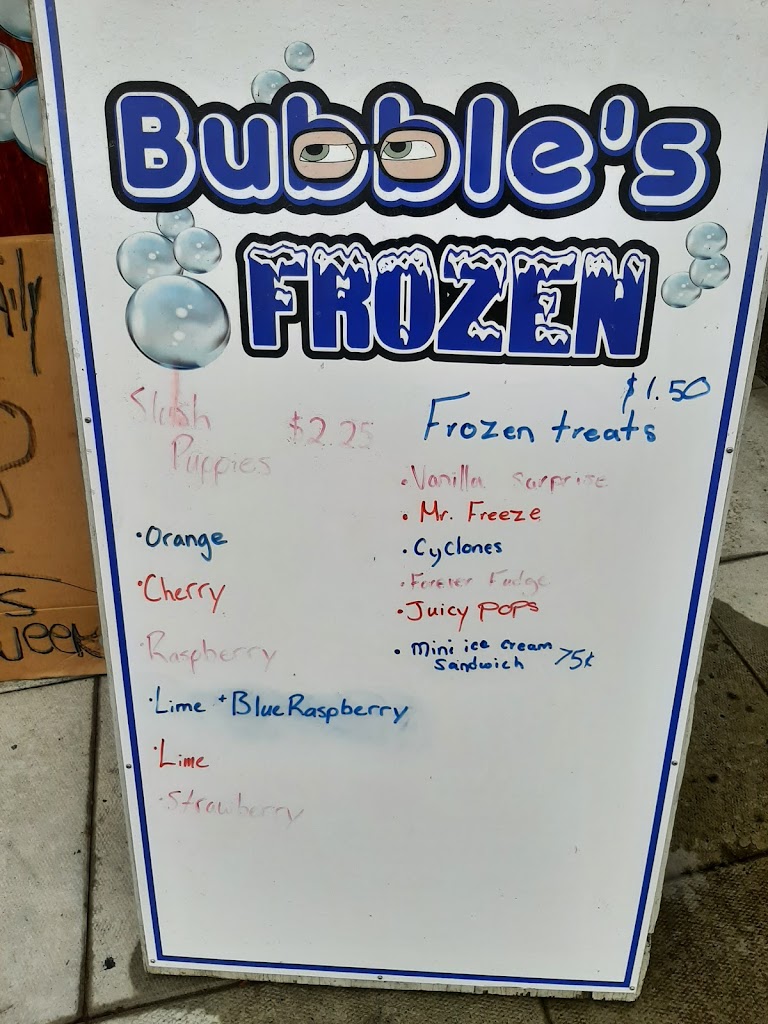 Bubble's
FROZEN
Slush $2.25
Puppies
•Orange
•Cherry
•Raspberry
•Lime + Blue Raspberry
•Lime
•Strawberry
$1.50
Frozen treats
•Vanilla surprise
•Mr. Freeze
•Cyclones
•Forever Fudge
•Juicy POPS
•Mini ice cream
Sandwich 75¢